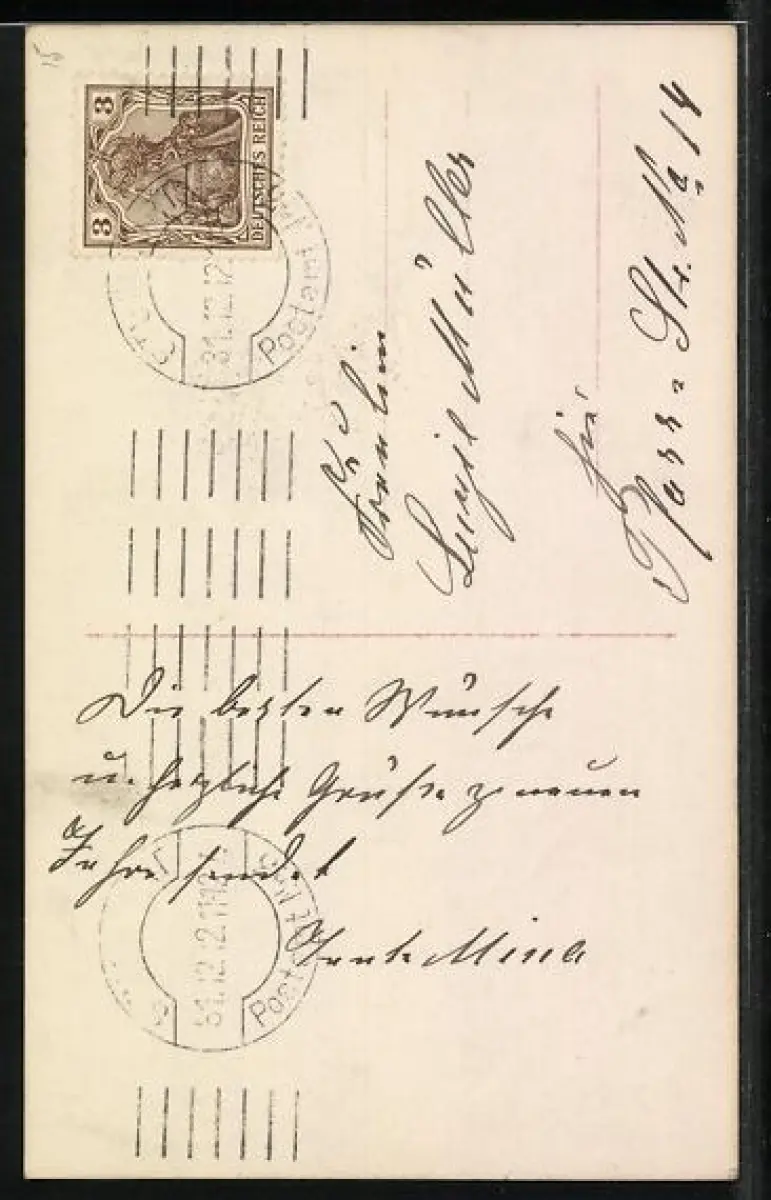 15
3 3
DEUTSCHES REICH
31.12.12
Postamt
Fräulein
Luise Müller
hier
Pfarr-Str. No 14
Die besten Wünsche
u. herzliche Grüße z. neuen
Jahre sendet
Tante Mina
31.12.12
Postamt